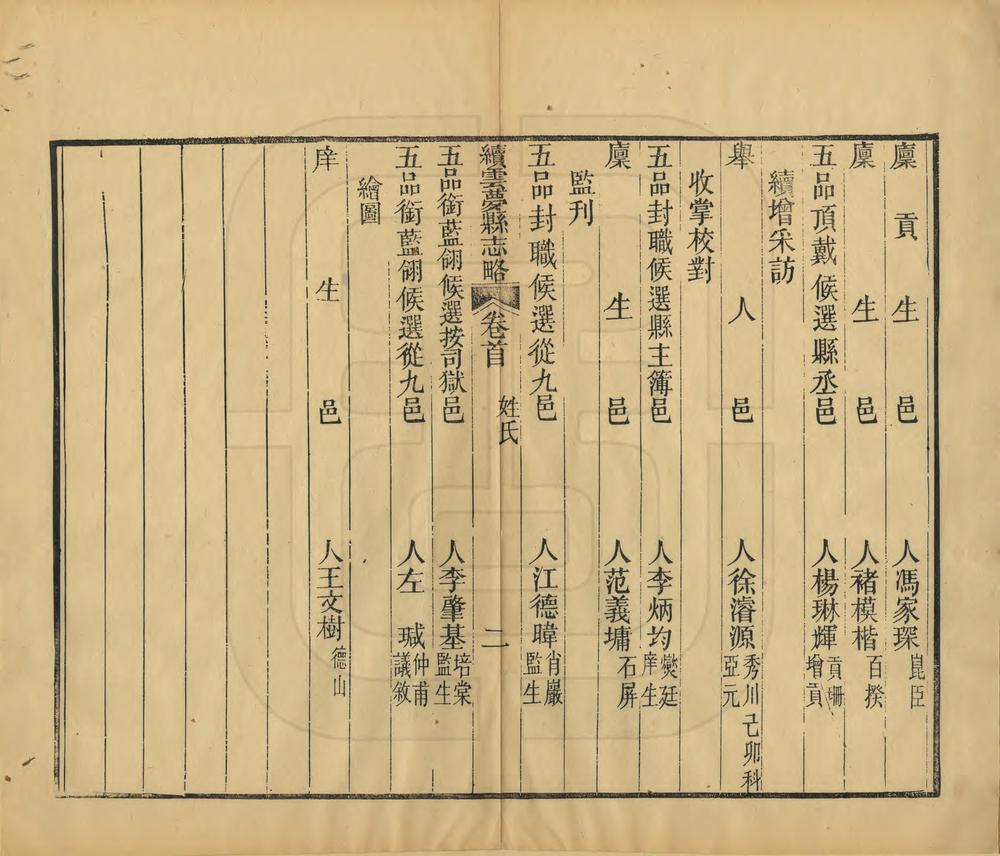 廩貢生邑人馮家琛崑臣
廩生邑人褚模楷百揆
五品頂戴候選縣丞邑人楊琳輝貢珊增貢
續增采訪
舉人邑人徐濬源秀川己卯科亞元
收掌校對
五品封職候選縣主簿邑人李炳均爕廷庠生
廩生邑人范義墉石屏
監刊
五品封職候選從九邑人江德暐肖巖監生
續雲夢縣志略 卷首 姓氏 二
五品銜藍翎候選按司獄邑人李肇基培棠監生
五品銜藍翎候選從九邑人左瑊仲甫議敘
繪圖
庠生邑人王文樹德山